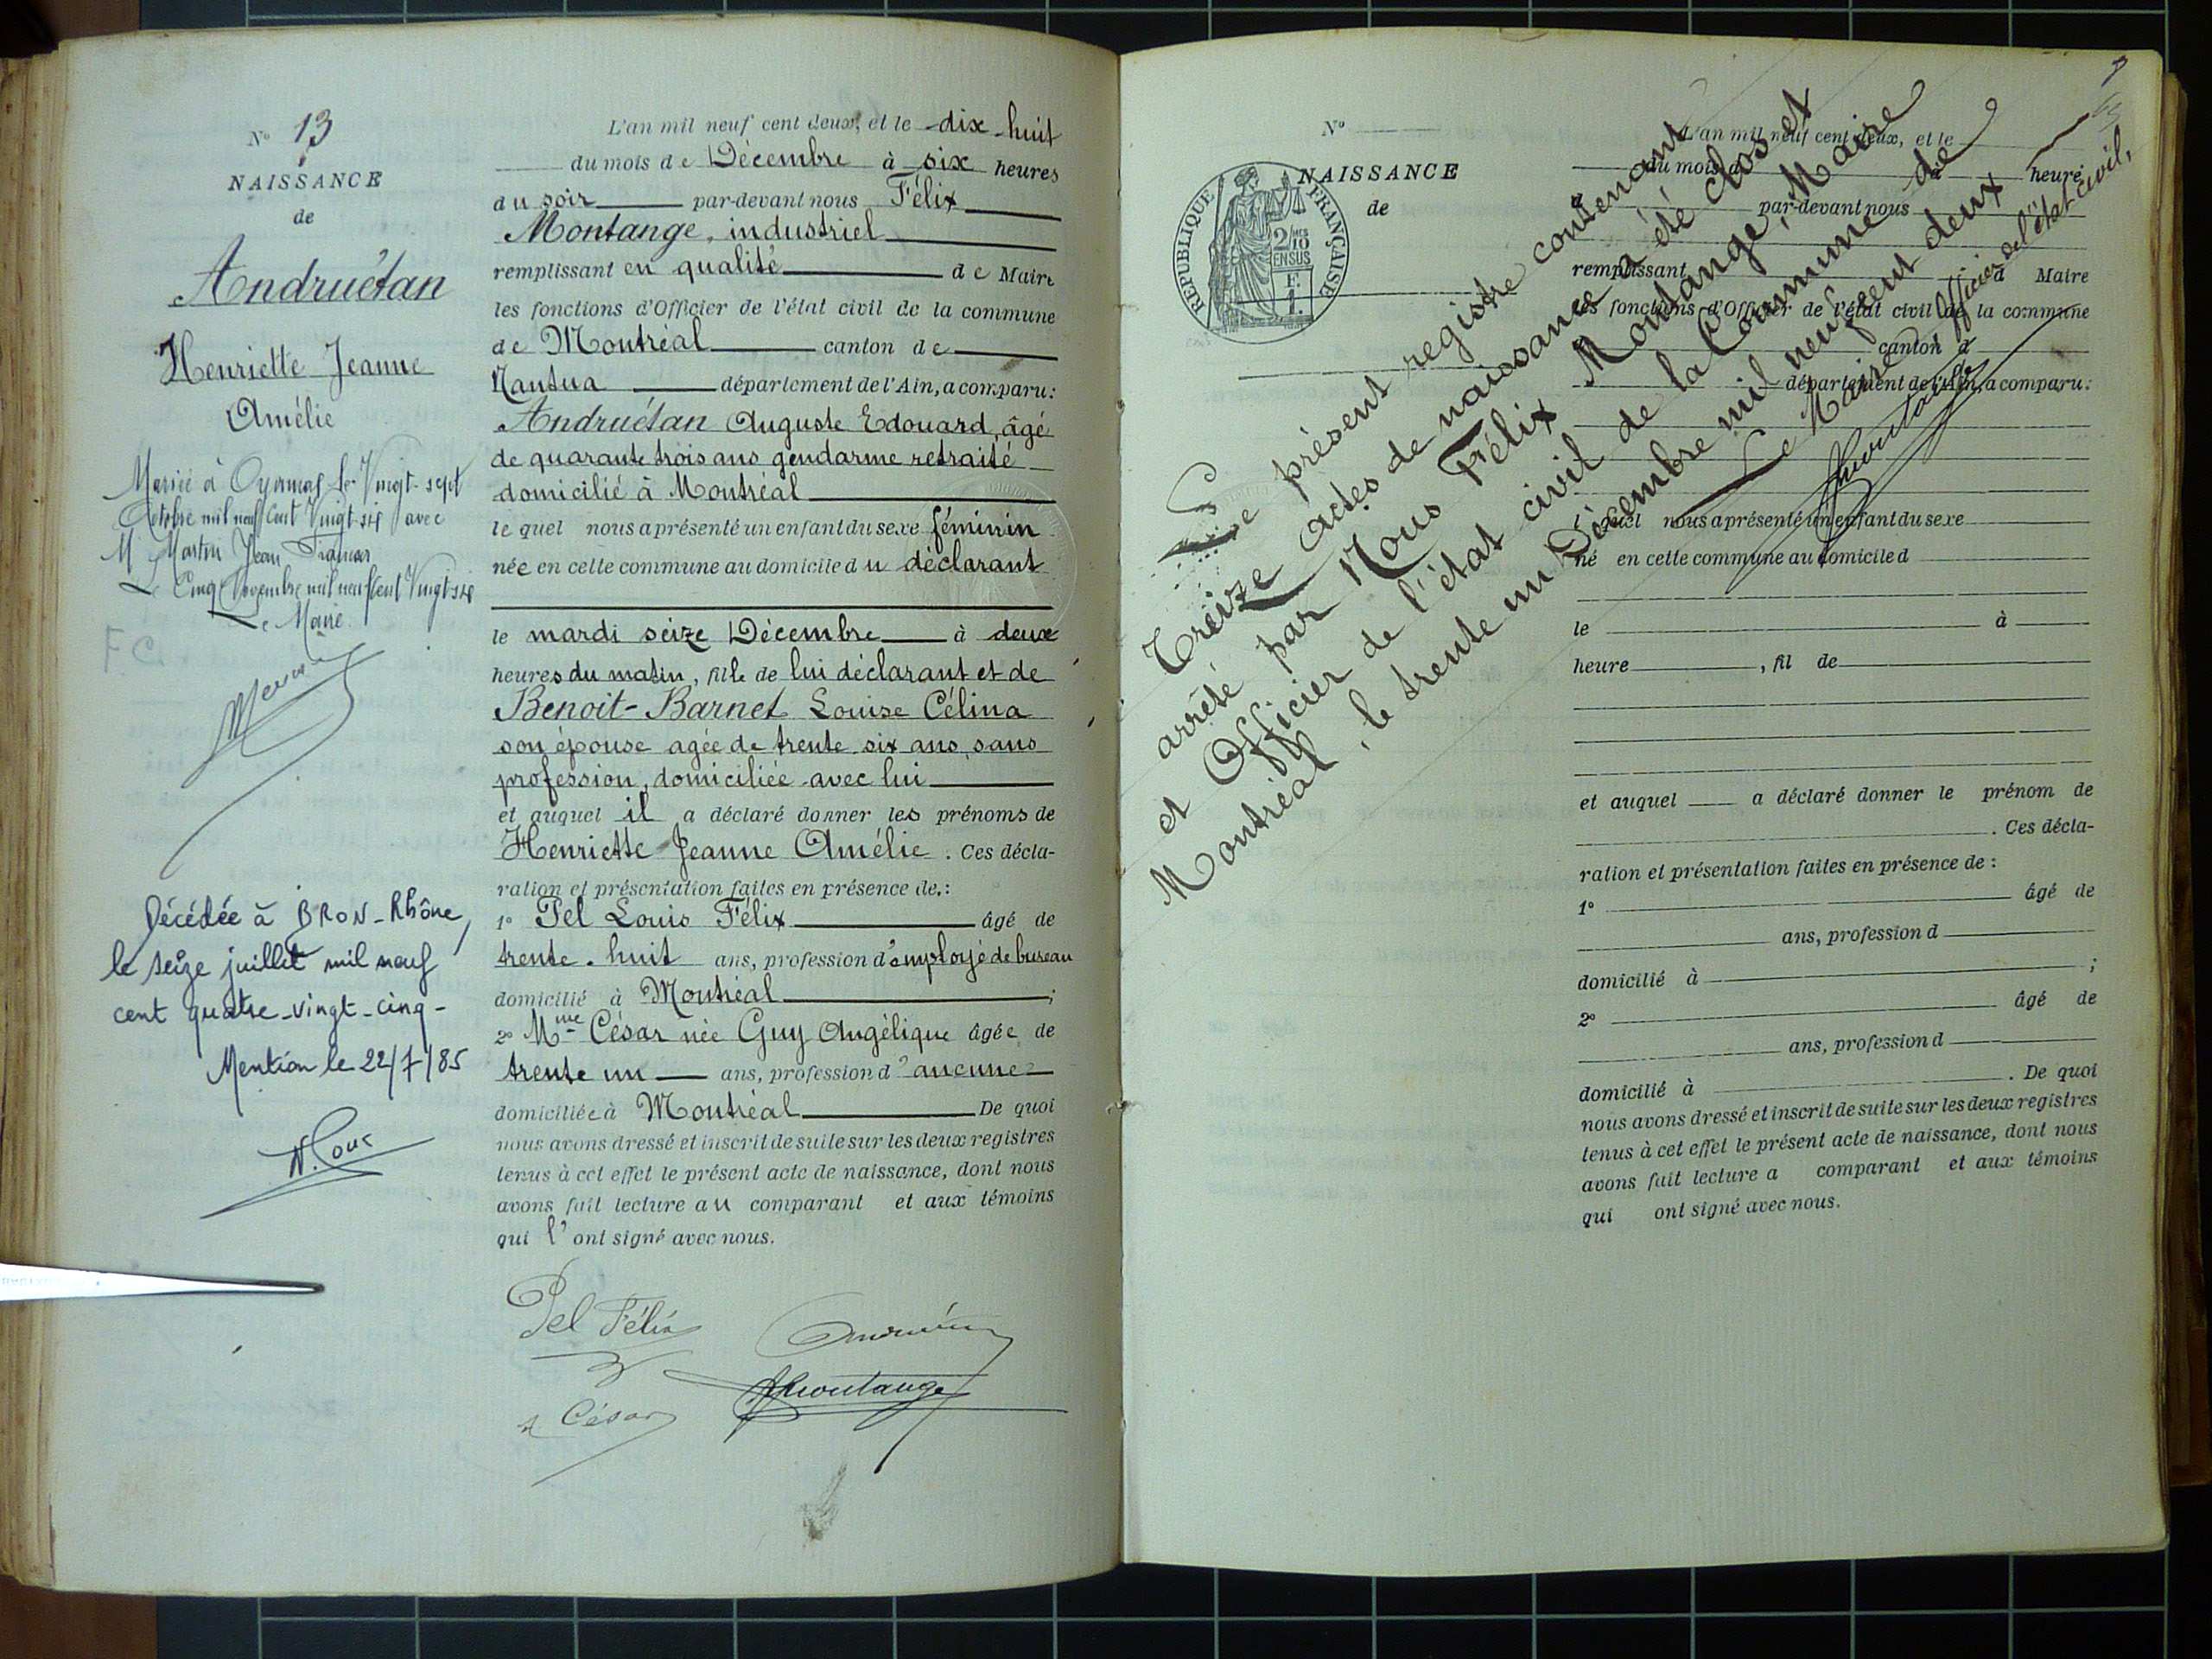 N° 13
NAISSANCE
de
Andruétan
Henriette Jeanne
Amélie
Mariée à Oyonnax le Vingt-sept
Octobre mil neuf cent Vingt-six avec
M Martin Jean François
Le Cinq Novembre mil neuf cent Vingt-six
Le Maire
F C
Décédée à BRON-Rhône,
le seize juillet mil neuf
cent quatre-vingt-cinq-
Mention le 22/7/85
L'an mil neuf cent deux, et le dix-huit
du mois de Décembre à six heures
du soir par-devant nous Félix
Montange, industriel
remplissant en qualité de Maire
les fonctions d'Officier de l'état civil de la commune
de Montréal canton de
Nantua département de l'Ain, a comparu:
Andruétan Auguste Edouard, âgé
de quarante trois ans gendarme retraité
domicilié à Montréal
le quel nous a présenté un enfant du sexe féminin
née en cette commune au domicile du déclarant
le mardi seize Décembre à deux
heures du matin, fille de lui déclarant et de
Benoit-Barnet Louise Célina
son épouse agée de trente six ans, sans
profession, domiciliée avec lui
et auquel il a déclaré donner les prénoms de
Henriette Jeanne Amélie. Ces décla-
ration et présentation faites en présence de:
1° Pel Louis Félix âgé de
trente-huit ans, profession d'employé de bureau
domicilié à Montréal;
2° Mme César née Guy Angélique âgée de
trente un ans, profession d'aucune
domiciliée à Montréal De quoi
nous avons dressé et inscrit de suite sur les deux registres
tenus à cet effet le présent acte de naissance, dont nous
avons fait lecture au comparant et aux témoins
qui l'ont signé avec nous.
Pel Félix
César
Montange
N°
NAISSANCE
de
REPUBLIQUE FRANÇAISE
2/10
EN SUS
Le présent registre contenant
Treize actes de naissance a été clos et
arrêté par Nous Félix Montange, Maire
et Officier de l'état civil de la Commune de
Montréal, le trente un Décembre mil neuf cent deux
Le Maire Officier de l'état civil,
Montange
L'an mil neuf cent deux, et le
du mois d à heure
par-devant nous
remplissant d Maire
les fonctions d'Officier de l'état civil de la commune
canton d
département de l'Ain, a comparu:
quel nous a présenté un enfant du sexe
né en cette commune au domicile d
le à
heure , fil de
et auquel a déclaré donner le prénom de
. Ces décla-
ration et présentation faites en présence de:
1° âgé de
ans, profession d
domicilié à ;
2° âgé de
ans, profession d
domicilié à . De quoi
nous avons dressé et inscrit de suite sur les deux registres
tenus à cet effet le présent acte de naissance, dont nous
avons fait lecture a comparant et aux témoins
qui ont signé avec nous.